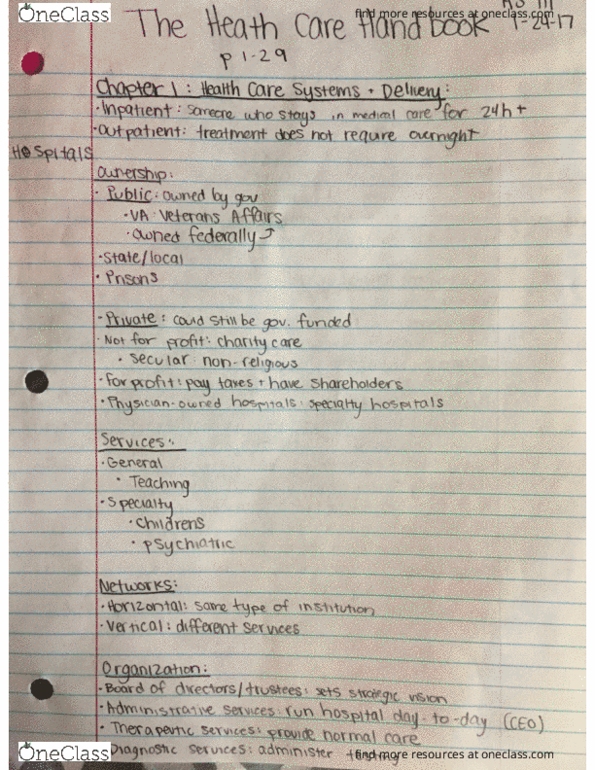 OneClass
find more resources at oneclass.com
The Heath Care Handbook
1-24-17
p 1-29
Chapter 1: Health Care Systems + Delivery:
·Inpatient: someone who stays in medical care for 24h+
·Outpatient: treatment does not require overnight
Hospitals
Ownership:
· Public: owned by gov
·VA: Veterans Affairs
·owned federally
·State/local
· Prisons
·Private: could still be gov. funded
·Not for profit: charity care
· secular: non-religious
·For profit: pay taxes + have shareholders
·Physician-owned hospitals: specialty hospitals
Services:
·General
· Teaching
·Specialty
·Childrens
· psychiatric
Networks:
·Horizontal: same type of institution
·Vertical: different services
Organization:
·Board of directors/trustees: sets strategic vision
·Administrative services: run hospital day-to-day (CEO)
· Therapeutic services: provide normal care
Diagnostic services: administer
OneClass
find more resources at oneclass.com